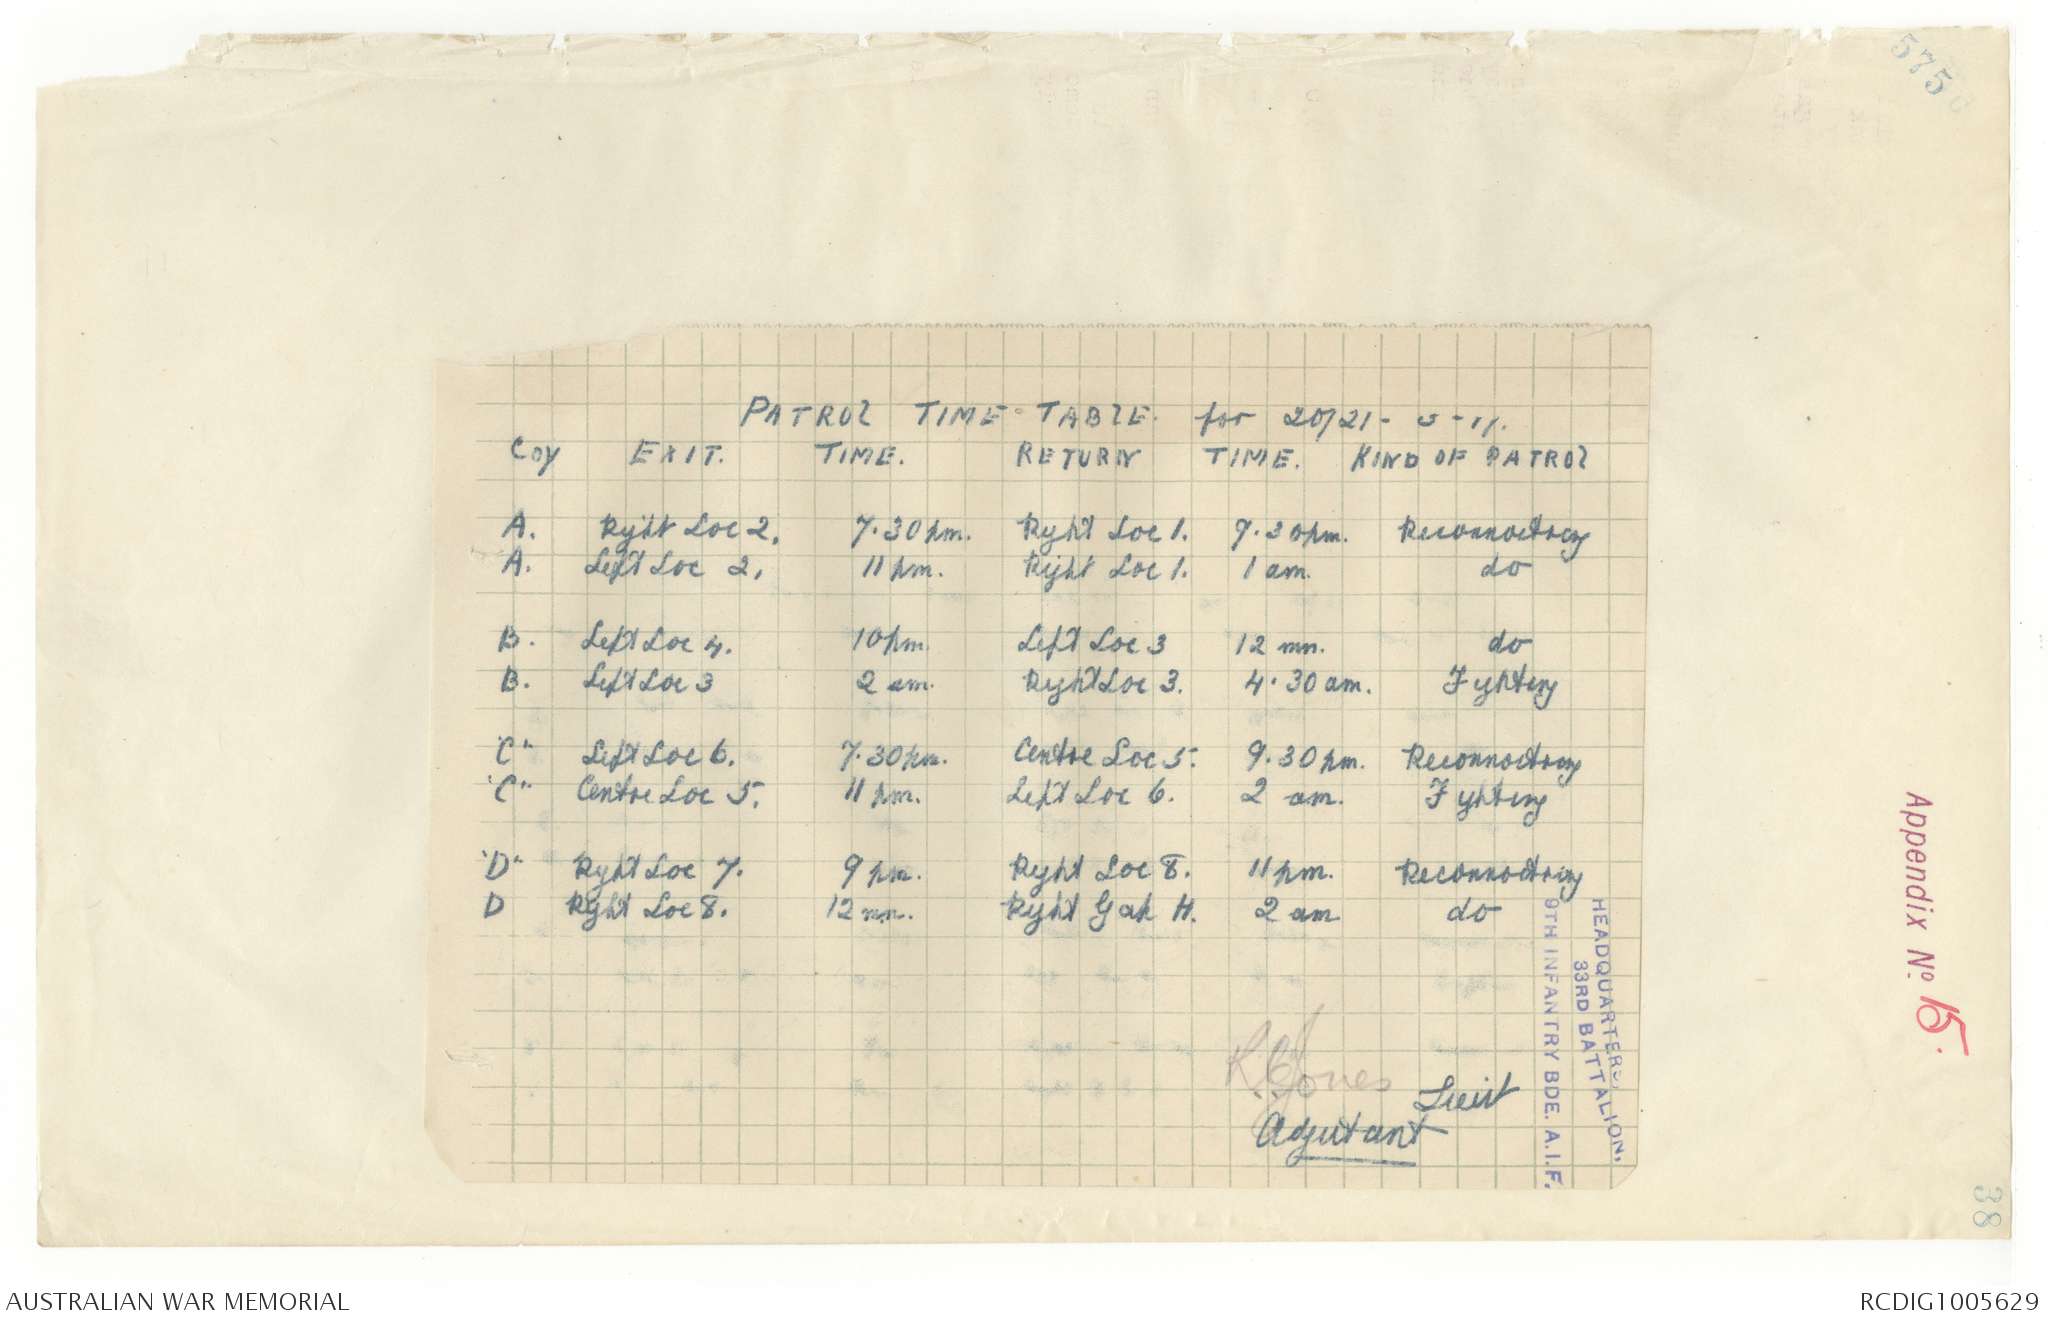 575
PATROL TIME-TABLE. for 20/21-5-17.
Coy EXIT. TIME. RETURN TIME. KIND OF PATROL
A. Right Loc 2. 7.30pm. Right Loc 1. 9.30pm. Reconnoitring
A. Left Loc 2. 11pm. Right Loc 1. 1 am. do
B. Left Loc 4. 10pm. Left Loc 3 12 mn. do
B. Left Loc 3 2 am. Right Loc 3. 4.30am. Fighting
"C" Left Loc 6. 7.30pm. Centre Loc 5. 9.30pm. Reconnoitring
"C" Centre Loc 5. 11pm. Left Loc 6. 2 am. Fighting
"D" Right Loc 7. 9pm. Right Loc 8. 11pm. Reconnoitring
D Right Loc 8. 12 mn. Right Gap H. 2 am do
Jones Lieut
Adjutant
HEADQUARTERS,
33RD BATTALION,
9TH INFANTRY BDE. A.I.F.
Appendix No 15.
38
AUSTRALIAN WAR MEMORIAL RCDIG1005629